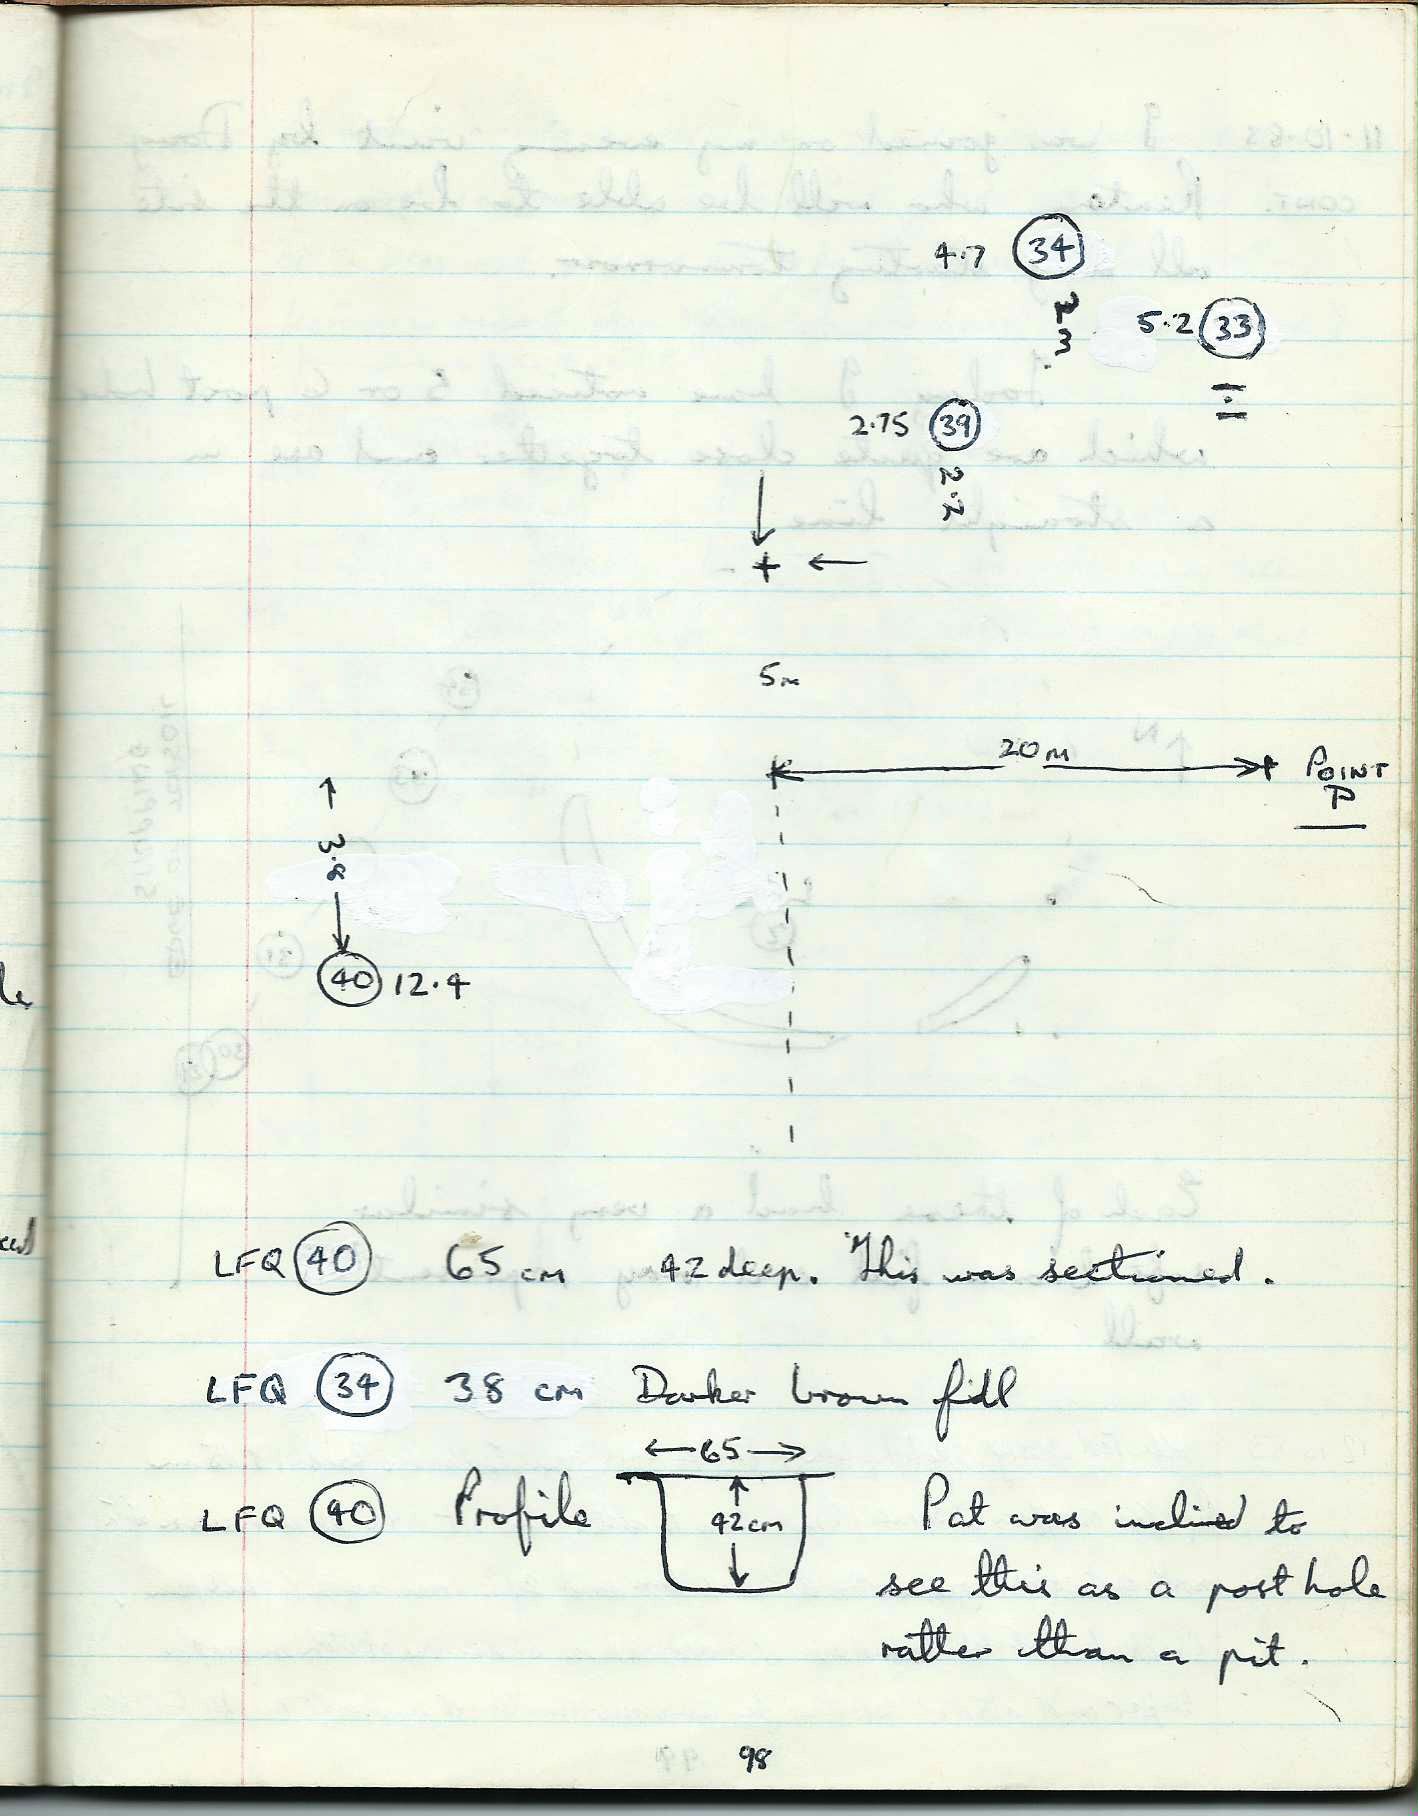 4.7 34
2.3
5.2 33
1.1
2.75 39
2.2
5m
20m
POINT
P
3.8
40 12.4
LFQ 40 65 cm 42 deep. This was sectioned.
LFQ 34 38 cm Darker brown fill
65
LFQ 40 Profile 42cm Pat was inclined to
see this as a post hole
rather than a pit.
98